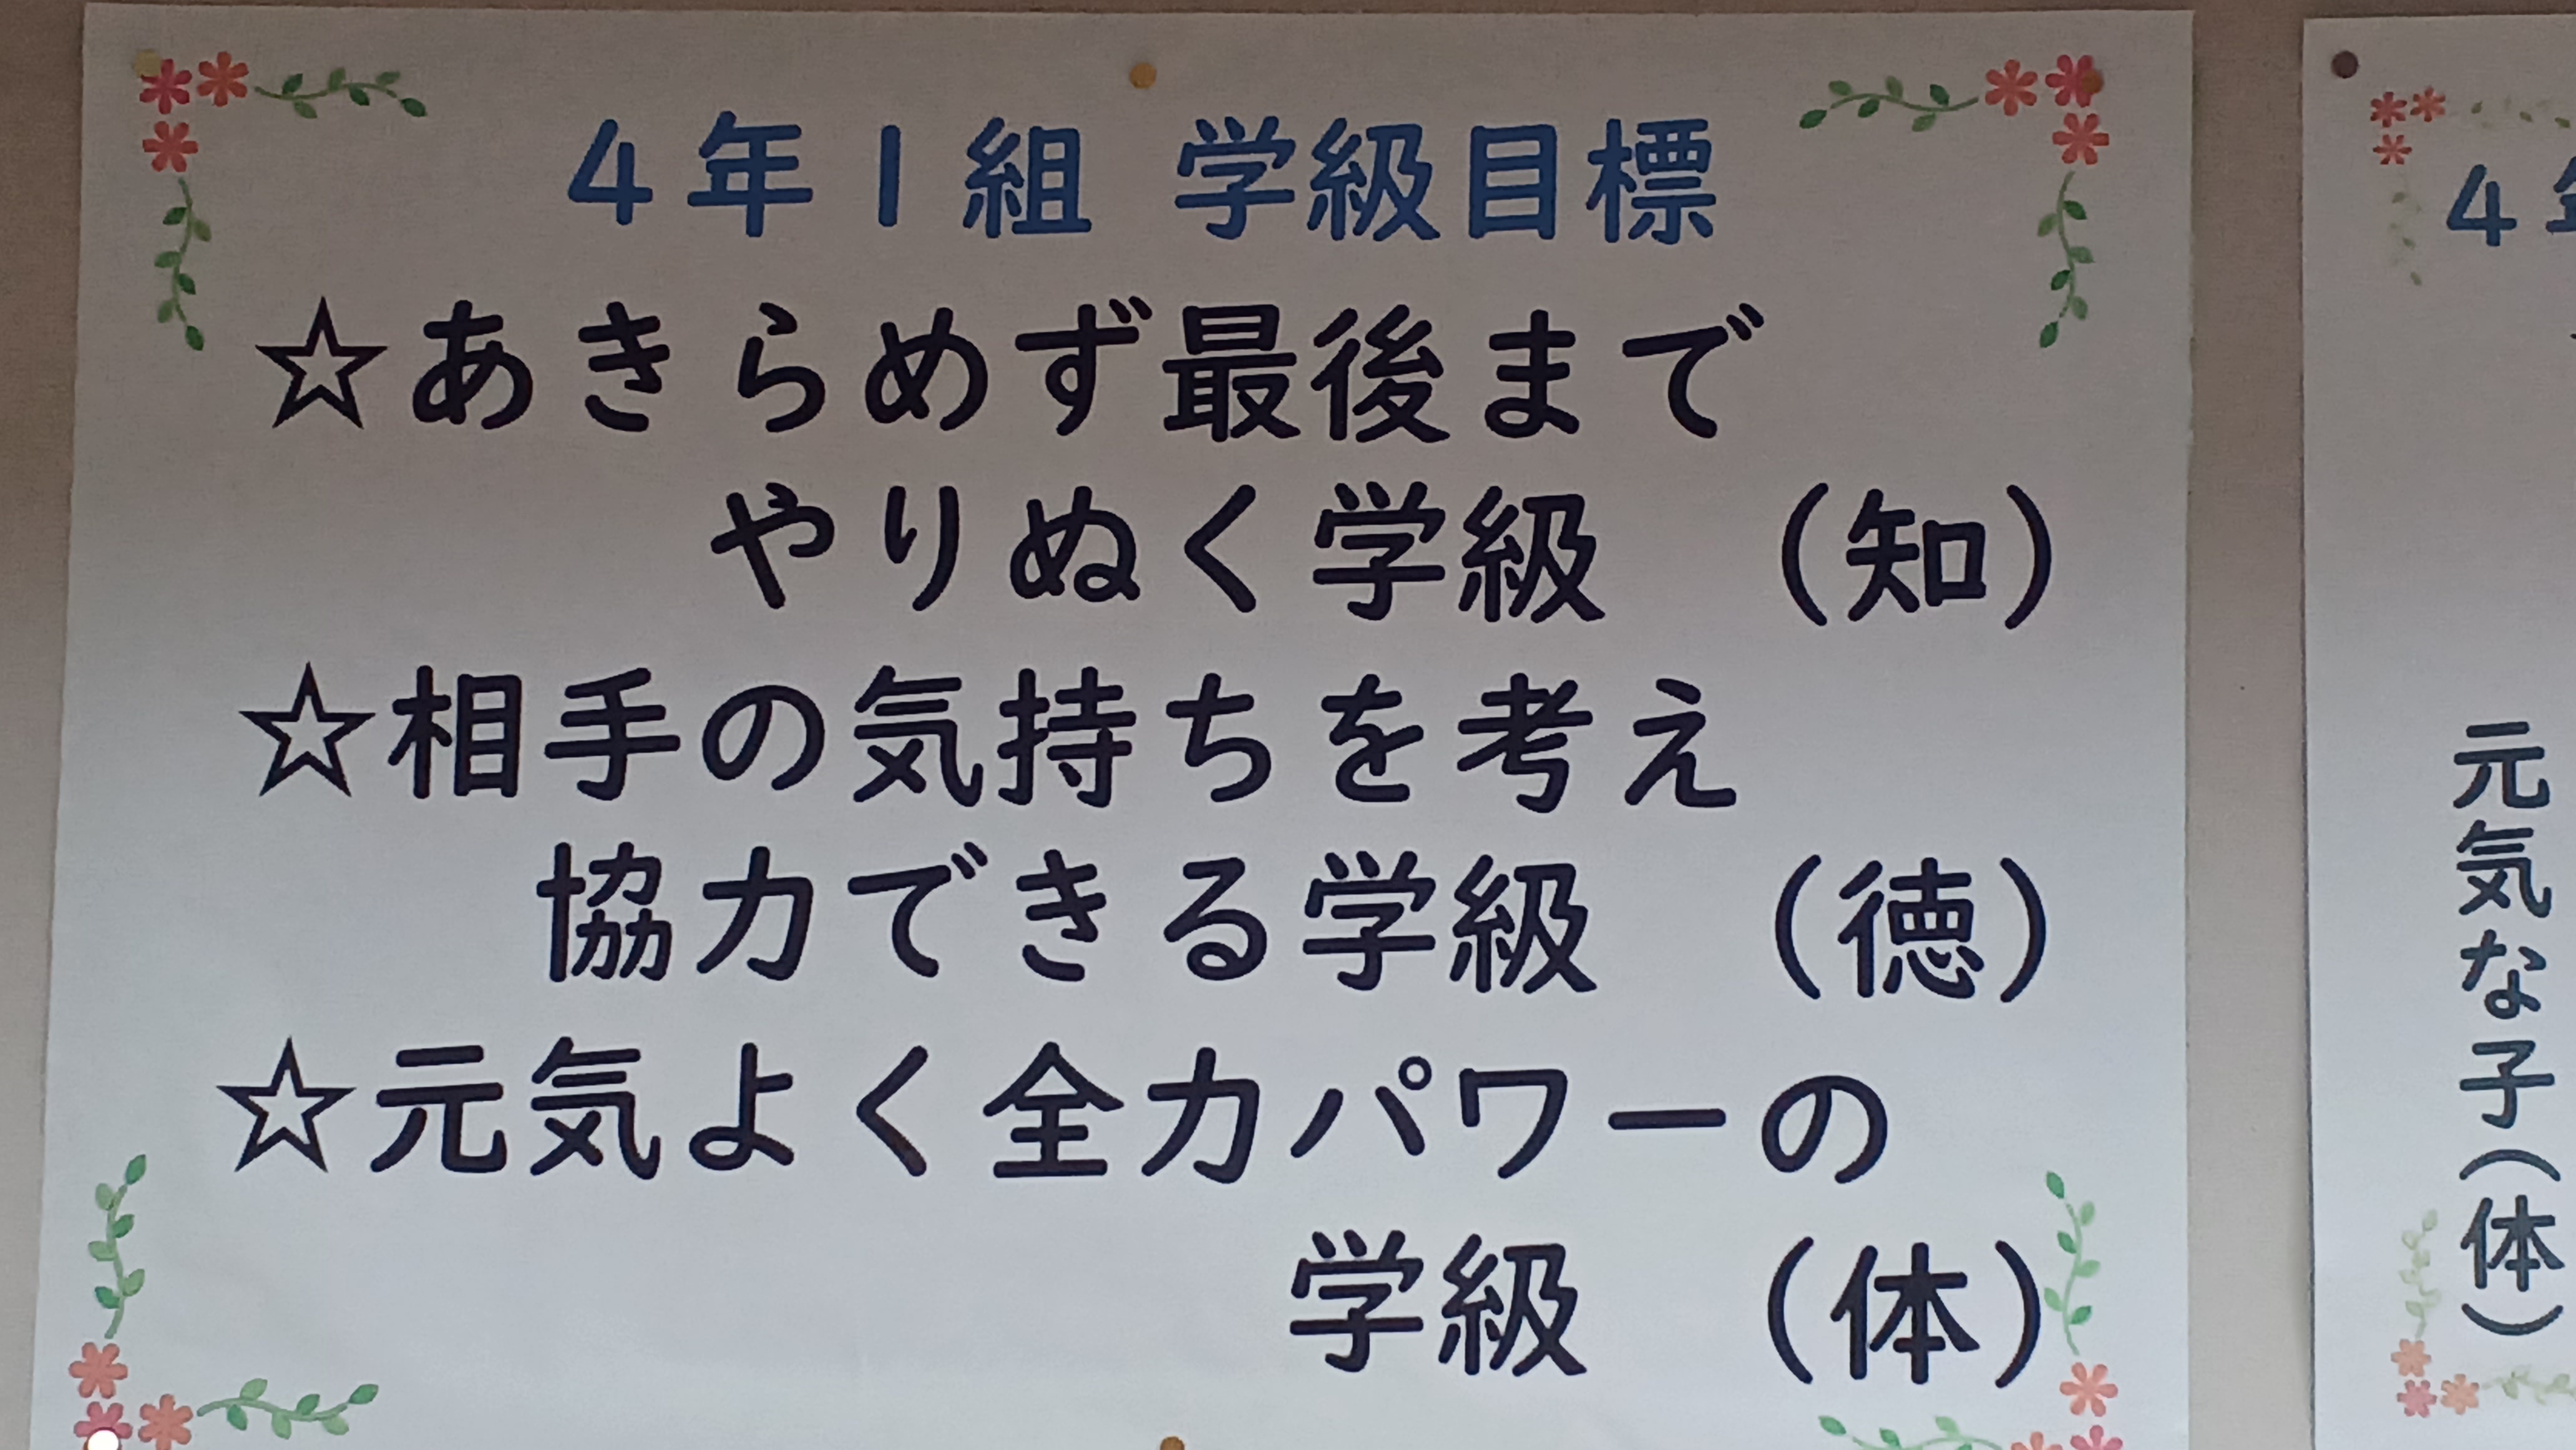 4年1組 学級目標
☆あきらめず最後まで
やりぬく学級 (知)
☆相手の気持ちを考え
協力できる学級 (徳)
☆元気よく全力パワーの
学級 (体)
4年
元気な子(体)